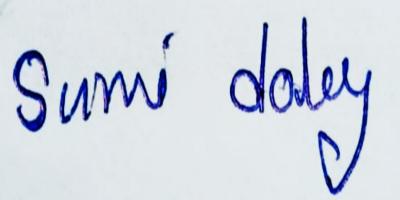 Sumi daley